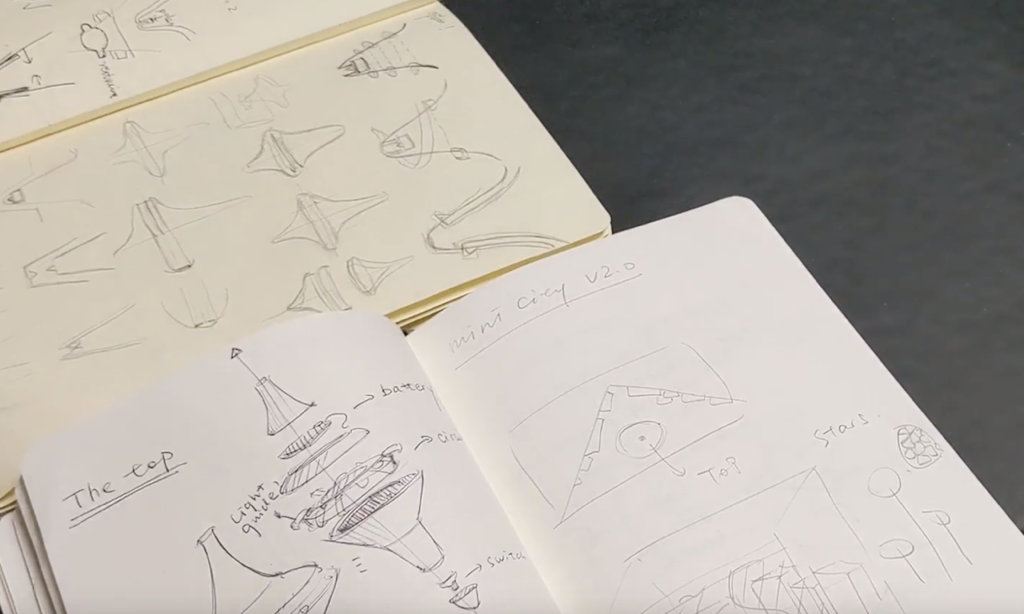 The top
battery
Light
guide
switch
mini city V2.0
Top
Stars.